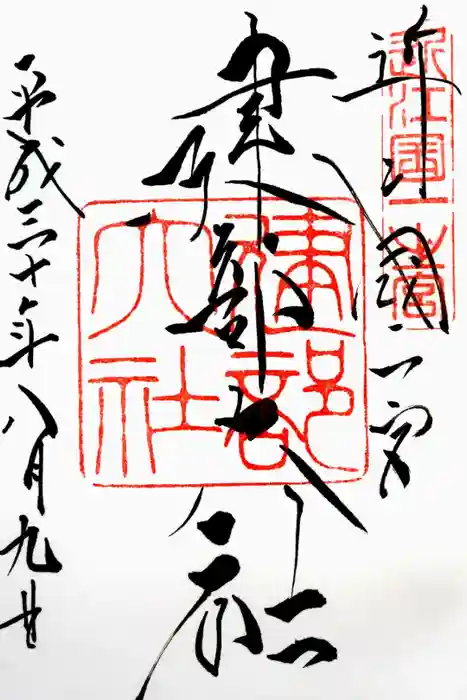 近江國一宮
近江國一之宮
建部大社
建部大社
平成三十年八月九日